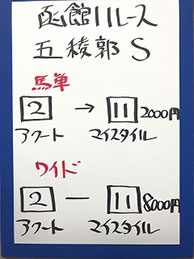 函館11レース
五稜郭S
馬単
2 → 11 2000円
アクート マイスタイル
ワイド
2 － 11 8000円
アクート マイスタイル